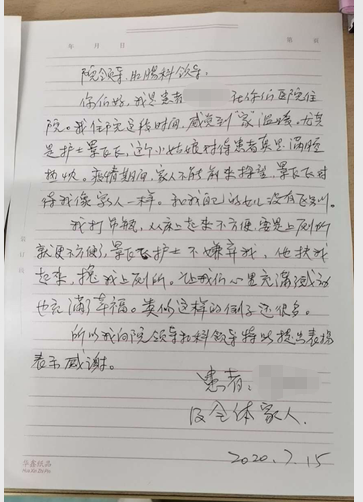 年 月 日 第 页
院领导、肛肠科领导:
你们好,我是患者 在你们医院住
院。我住院这段时间,感觉到家温暖。尤其
是护士景飞飞,这个小姑娘对待患者真是满腔
热忱。疫情期间,家人不能前来探望,景飞飞对
待我像家人一样。和我自己的女儿没有区别。
我打吊瓶,从床上起来不方便,要是上厕所
就更不方便了,景飞飞护士不嫌弃我,他扶我
起来,搀我上厕所。让我们心里充满感动
也充满了幸福。类似这样的例子还很多。
所以我向院领导和科领导特此提出表扬
表示感谢。
患者:
及全体家人.
2020.7.15
华鑫纸品